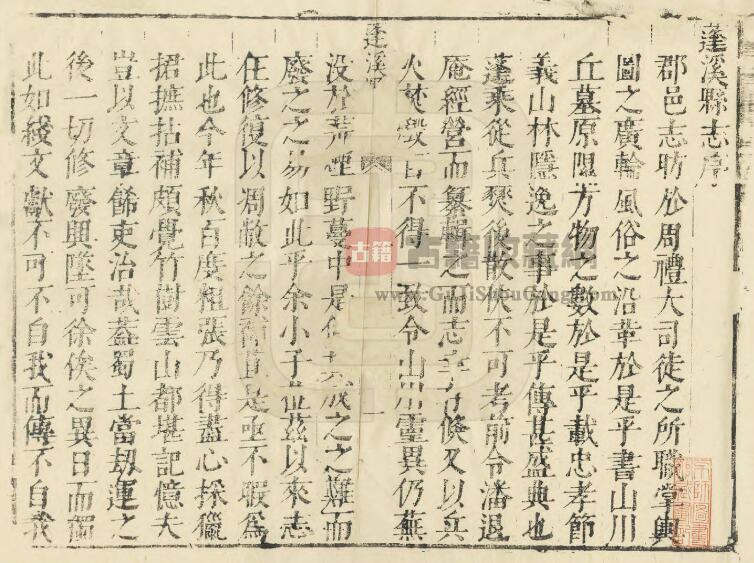 蓬溪縣志序
郡邑志昉於周禮大司徒之所職掌輿
圖之廣輪風俗之沿革於是乎書山川
丘墓原隰方物之數於是乎載忠孝節
義山林隱逸之事於是乎傳甚盛典也
蓬乘從兵燹後散佚不可考前令潘退
庵經營而纂輯之而志幸存倏又以兵
火焚燬百不得一致令山川靈異仍蕪
蓬溪
一
没於荒煙野蔓中是何其成之之難而
廢之之易如此乎余小子蒞茲以來志
在修復以凋敝之餘是亟不暇為
此也今年秋百廢粗張乃得盡心採獵
捃摭拈補頗覺竹樹雲山都堪記憶夫
豈以文章餙吏治哉蓋蜀土當刼運之
後一切修廢興墜可徐俟之異日而獨
此如綫文獻不可不自我而傳不自我
古籍
古籍收藏網
www.GuJiShouCang.com